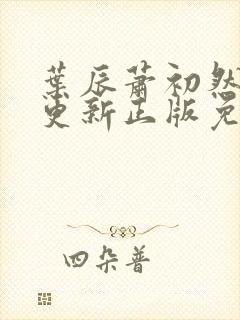 葉辰蕭初然
更新正版免
四朵普